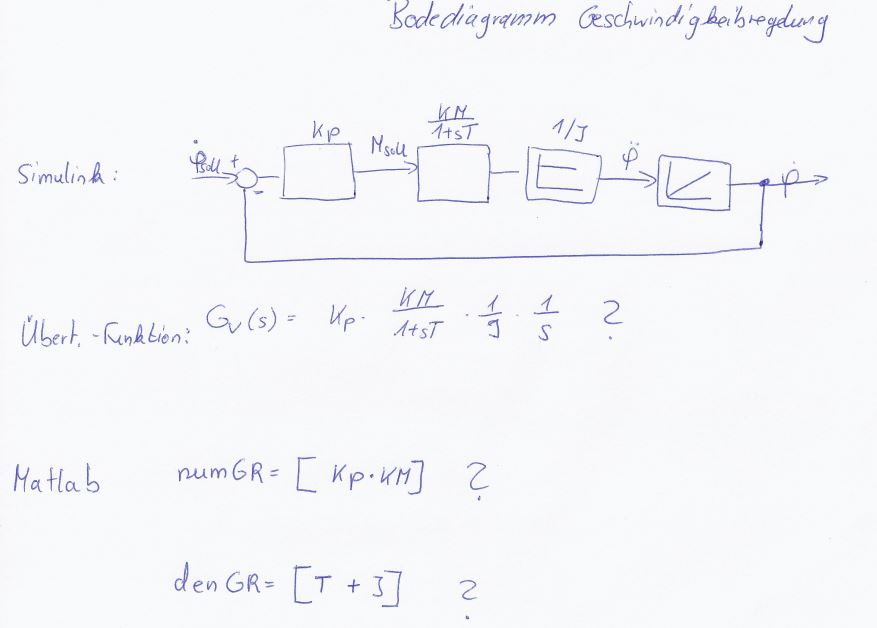 Bodediagramm Geschwindigkeitsregelung
Simulink:
φ̇soll + -
Kp
Msoll
KM/1+sT
1/J
φ̈
φ̇
Übert.-Funktion: Gv(s) = Kp · KM/1+sT · 1/J · 1/s ?
Matlab numGR = [ Kp·KM ] ?
denGR = [ T + J ] ?